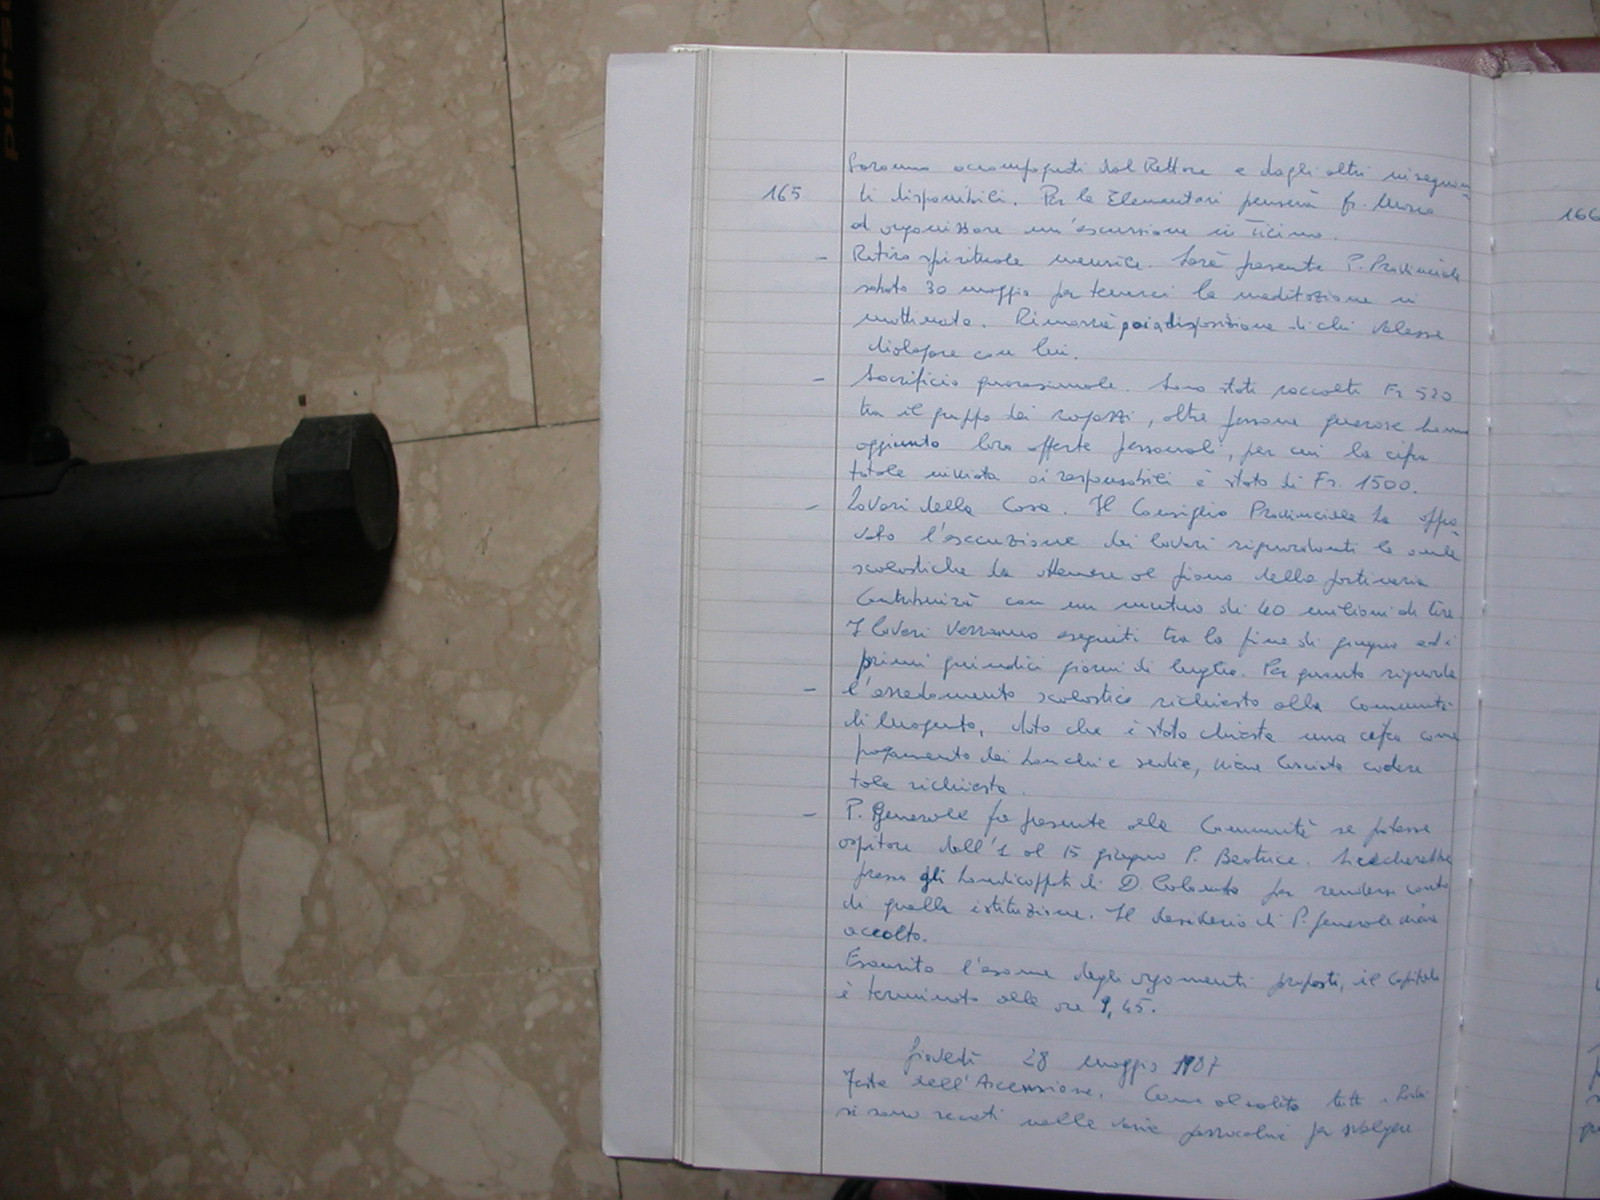 Saranno accompagnati dal Rettore e dagli altri insegnan
165
ti disponibili. Per le Elementari penserà fr.
ad organizzare un'escursione in Ticino.
- Ritiro spirituale mensile. Sarà presente P. Provinciale
sabato 30 maggio per tenerci la meditazione in
mattinata. Rimarrà poi a disposizione di chi volesse
dialogare con lui.
- Sacrificio quaresimale. Sono stati raccolti Fr 520
tra il gruppo dei ragazzi, altre persone generose hanno
aggiunto loro offerte personali, per cui la cifra
totale inviata ai responsabili è stata di Fr. 1500.
- Lavori della Casa. Il Consiglio Provinciale ha appro
vato l'esecuzione dei lavori riguardanti le aule
scolastiche da ottenere al piano della portineria
Contribuirà con un mutuo di 40 milioni di lire.
I lavori verranno eseguiti tra la fine di giugno ed i
primi quindici giorni di luglio. Per quanto riguarda
- l'arredamento scolastico richiesto alla Comunità
di, dato che è stata chiesta una cifra come
pagamento dei banchi e sedie, viene lasciata cadere
tale richiesta.
- P. Generale fa presente alla Comunità se potesse
ospitare dall'1 al 15 giugno P. Beatrice.
presso gli handicappati di D. per rendersi conto
di quella istituzione. Il desiderio di P. Generale viene
accolto.
Esaurito l'esame degli argomenti proposti, il Capitolo
è terminato alle ore 9,45.
Giovedì 28 maggio 1987
Festa dell'Ascensione. Come al solito tutti i Padri
si sono recati nelle varie parrocchie per svolgere
166